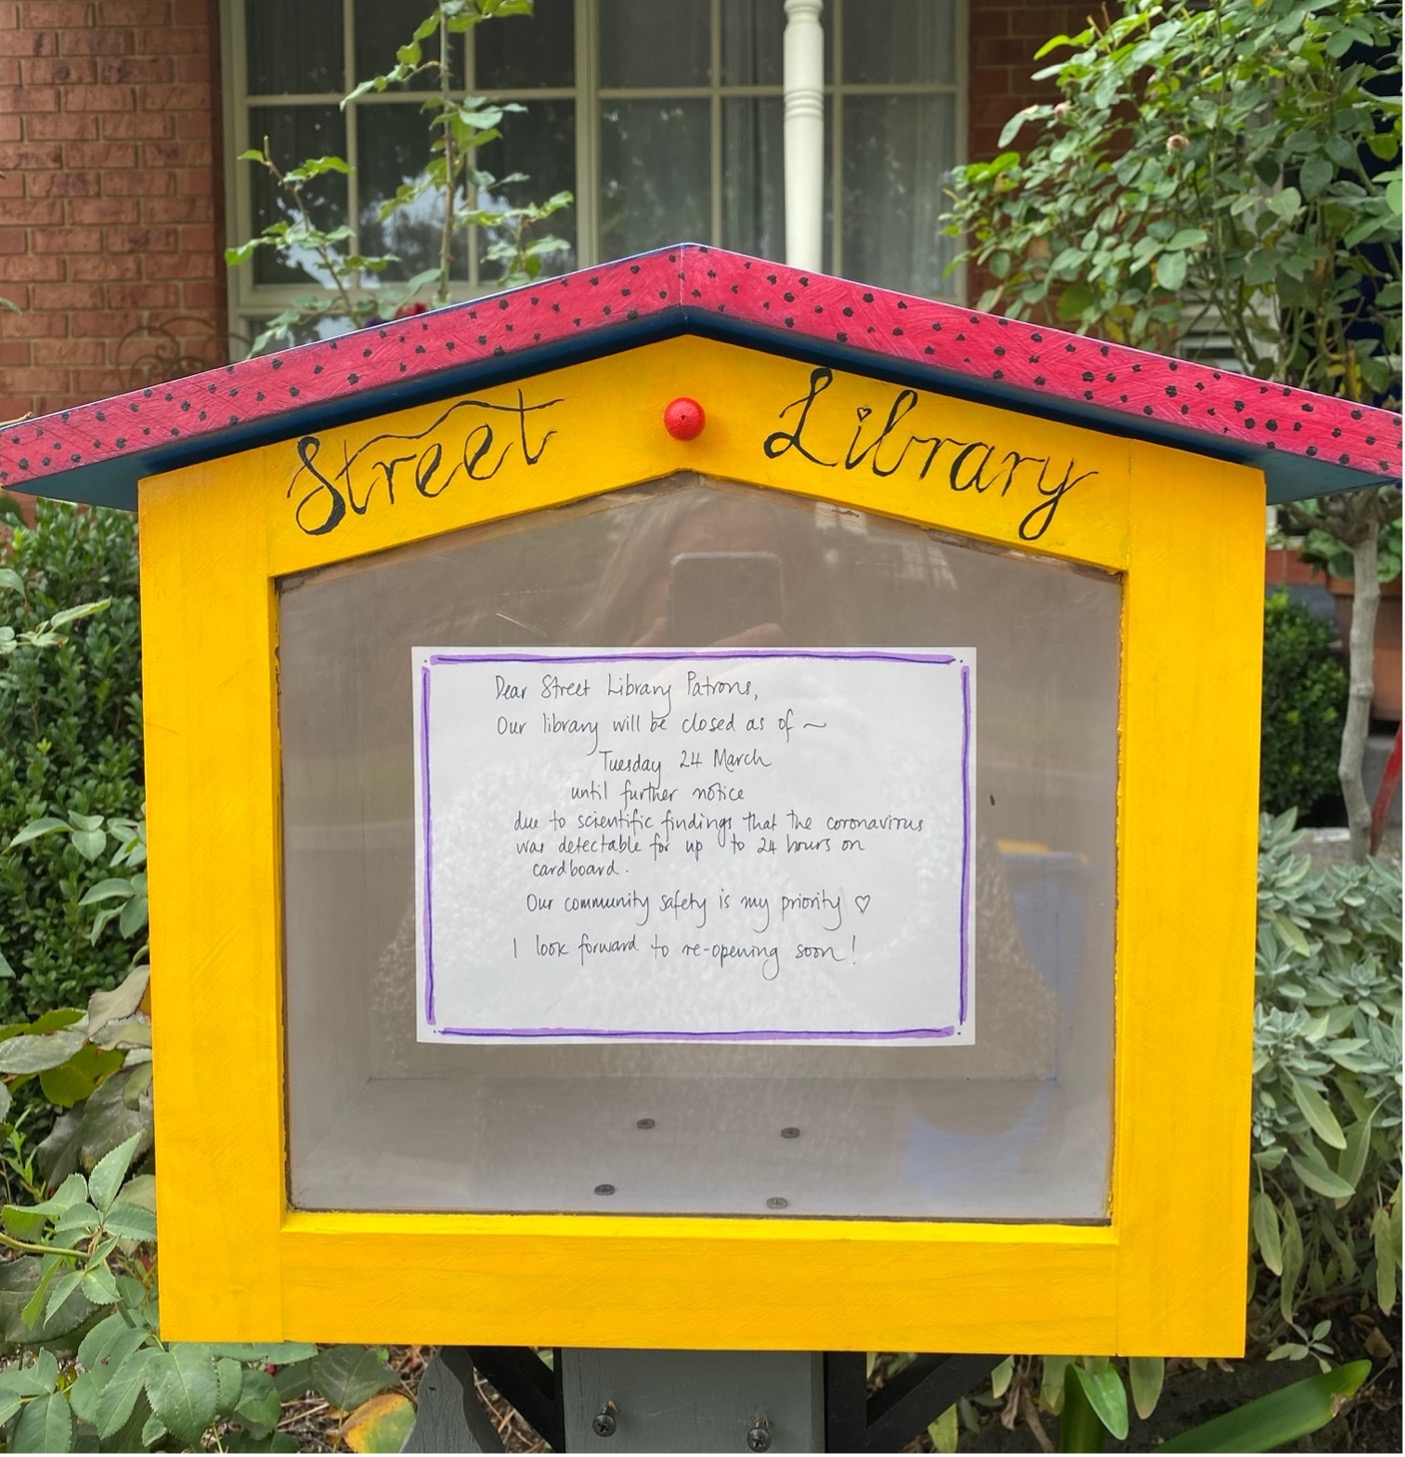 Street Library
Dear Street Library Patrons,
Our library will be closed as of ~
Tuesday 24 March
until further notice
due to scientific findings that the coronavirus
was detectable for up to 24 hours on
cardboard.
Our community safety is my priority ♡
I look forward to re-opening soon!